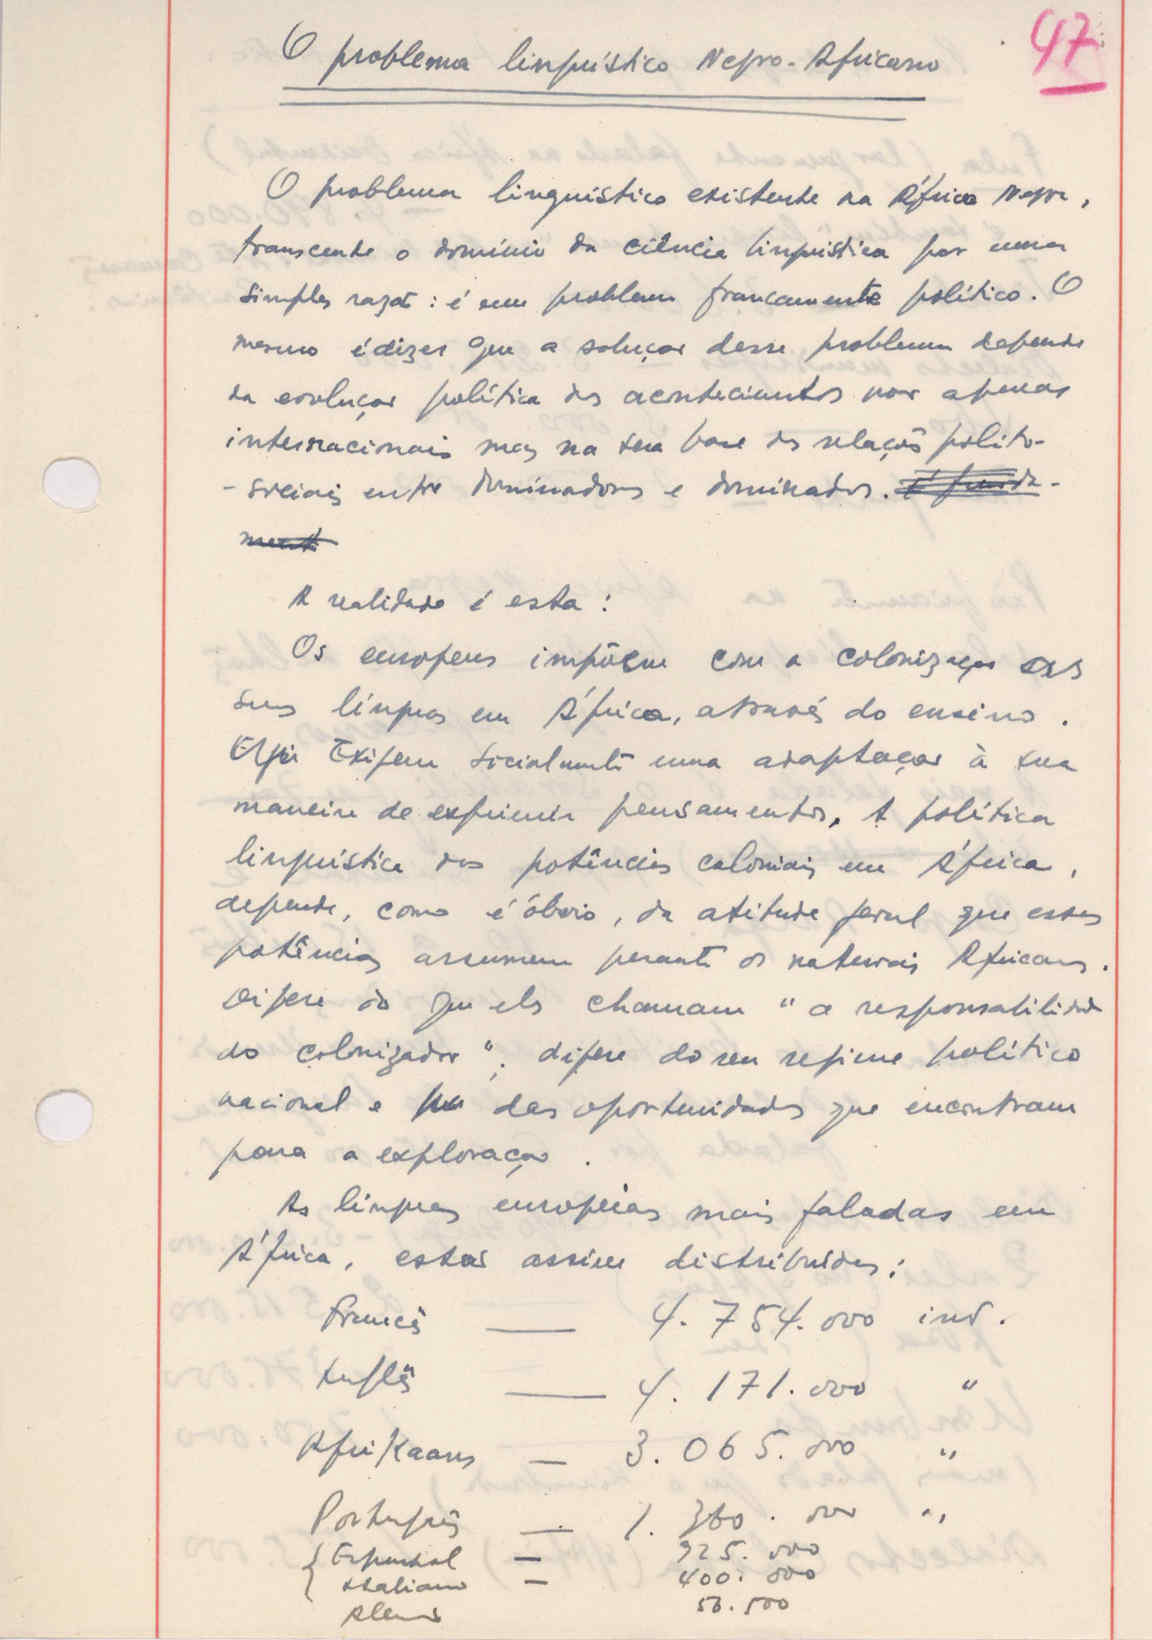 47
O problema linguístico Negro-Africano
O problema linguístico existente na África Negra,
transcende o domínio da ciência linguística por uma
simples razão: é um problema francamente político. O
mesmo é dizer que a solução desse problema depende
da evolução política dos acontecimentos não apenas
internacionais mas na sua base das relações polito-
-sociais entre dominadores e dominados. É funda-
ment
A realidade é esta:
Os europeus impõem com a colonização as
suas línguas em África, através do ensino.
Exigem socialmente uma adaptação à sua
maneira de exprimir pensamentos. A política
linguística das potências coloniais em África,
depende, como é óbvio, da atitude geral que essas
potências assumem perante os naturais Africanos.
Difere do que eles chamam "a responsabilidade
do colonizador"; difere do seu regime político
nacional e das oportunidades que encontram
para a exploração.
As línguas européias mais faladas em
África, estão assim distribuídas:
Francês — 4.754.000 ind.
Inglês — 4.171.000 "
Afrikaans — 3.065.000 "
Português — 1.360.000 "
Espanhol — 925.000
Italiano — 400.000
Alemão 56.500